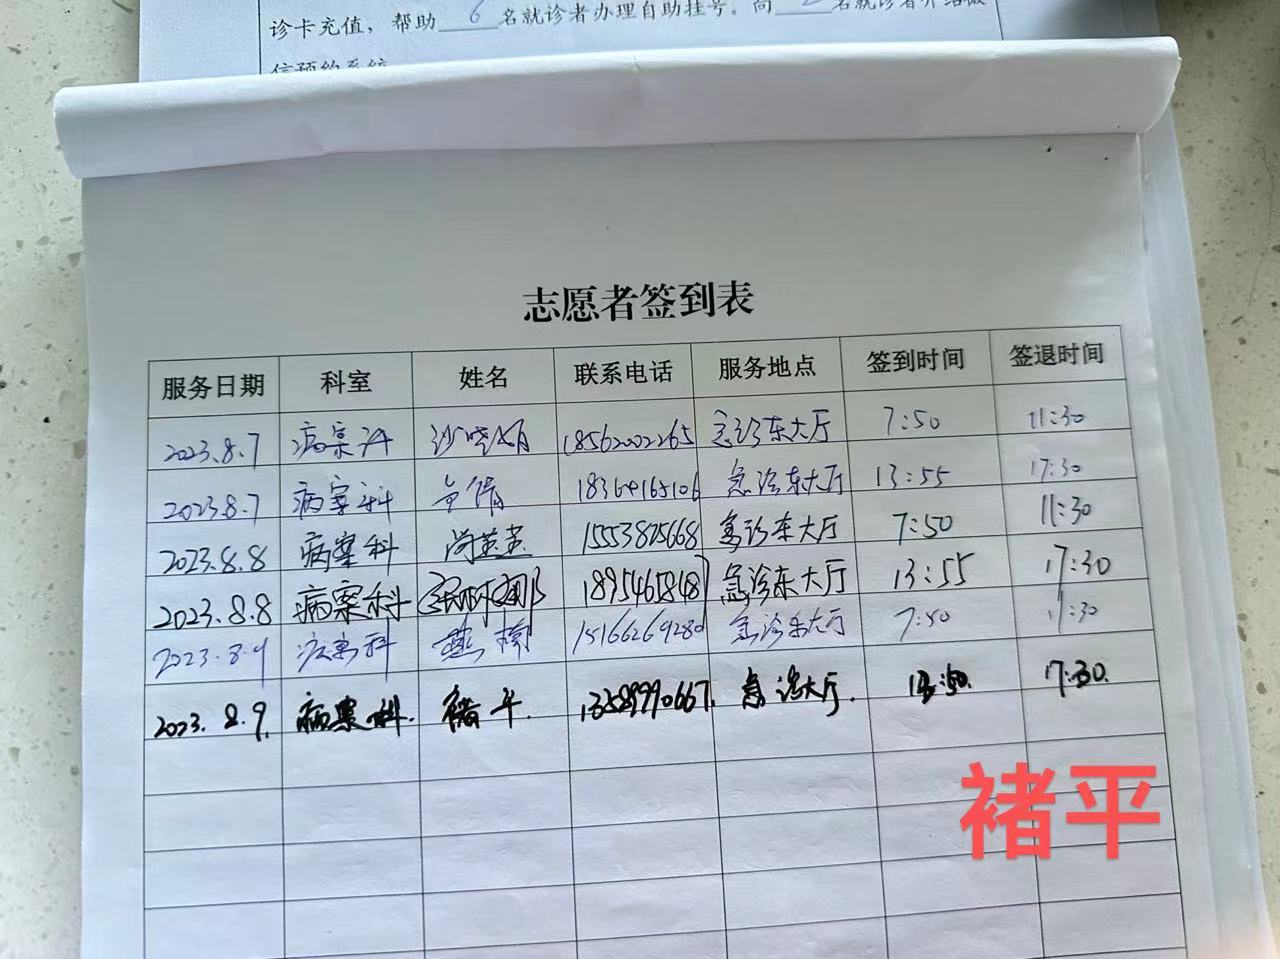 诊卡充值，帮助 6 名就诊者办理自助挂号。向 名就诊者介绍微
信预约系统
志愿者签到表
服务日期 科室 姓名 联系电话 服务地点 签到时间 签退时间
2023.8.7 病案科 18562002265 急诊东大厅 7:50 11:30
2023.8.7 病案科 18364165106 急诊东大厅 13:55 17:30
2023.8.8 病案科 15553825668 急诊东大厅 7:50 11:30
2023.8.8 病案科 1895465848 急诊东大厅 13:55 17:30
2023.8.9 病案科 燕楠 15166269280 急诊东大厅 7:50 11:30
2023.8.9. 病案科. 褚平. 13589990667. 急诊大厅. 13:50. 17:30.
褚平